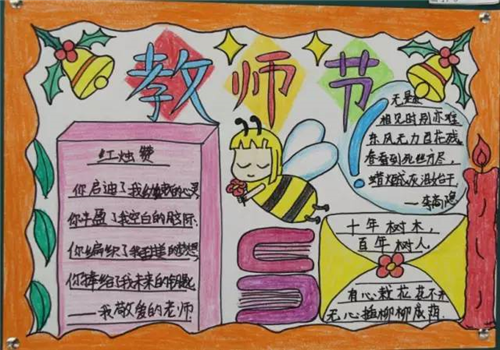 教师节
红烛赞
你启迪了我幼稚的心灵
你丰盈了我空白的脑际
你编织了我的梦想
你给了我未来的
——我敬爱的老师
无题
相见时别亦难
东风无力百花残,
春蚕到死丝方尽,
蜡炬成灰泪始干
——李商隐
十年树木,
百年树人.
有心栽花花不开
无心插柳柳成荫.